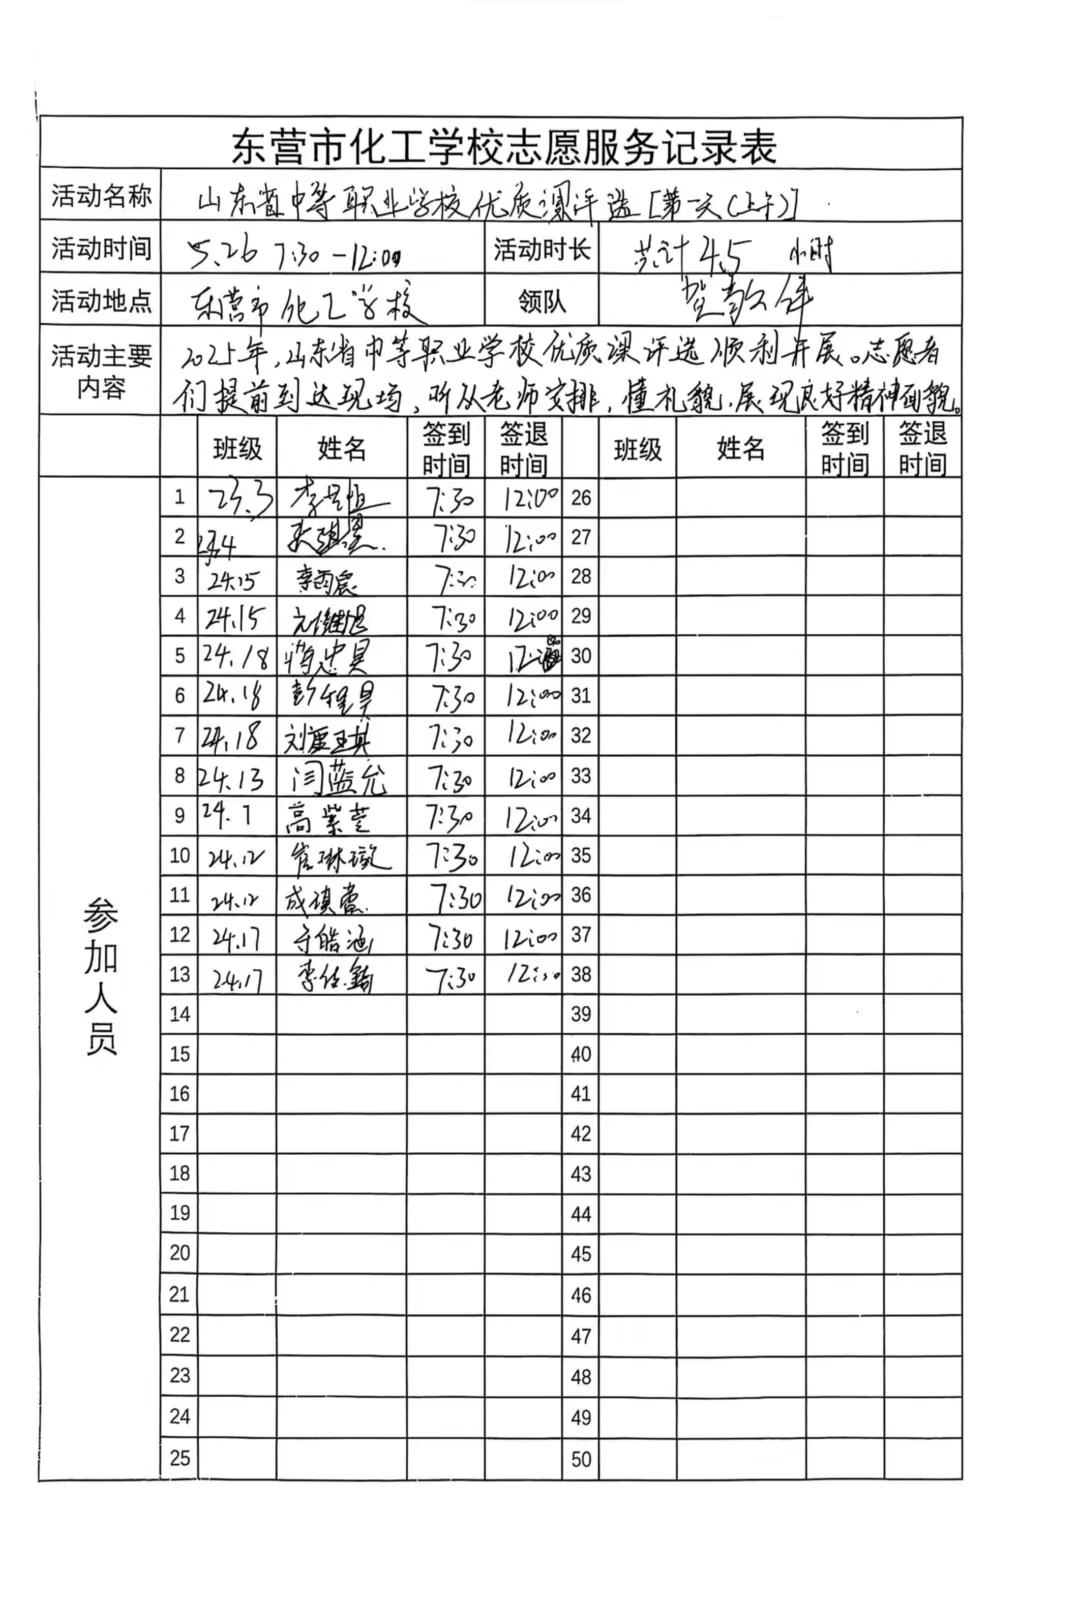 东营市化工学校志愿服务记录表
活动名称 山东省中等职业学校优质课评选[第一天(上午)]
活动时间 5.26 7:30-12:00 活动时长 共计4.5 小时
活动地点 东营市化工学校 领队
活动主要内容 2025年,山东省中等职业学校优质课评选顺利开展。志愿者
们提前到达现场,听从老师安排,懂礼貌,展现良好精神面貌。
班级 姓名 签到时间 签退时间 班级 姓名 签到时间 签退时间
参加人员
1 23.3 7:30 12:00 26
2 7:30 12:00 27
3 24.15 李雨宸 12:00 28
4 24.15 7:30 12:00 29
5 24.18 7:30 30
6 24.18 彭程昊 7:30 12:00 31
7 24.18 7:30 12:00 32
8 24.13 闫蓝允 7:30 12:00 33
9 24.7 高紫萱 7:30 12:00 34
10 24.12 崔琳璇 7:30 12:00 35
11 24.12 7:30 12:00 36
12 24.17 于皓涵 7:30 12:00 37
13 24.17 7:30 12:00 38
14 39
15 40
16 41
17 42
18 43
19 44
20 45
21 46
22 47
23 48
24 49
25 50